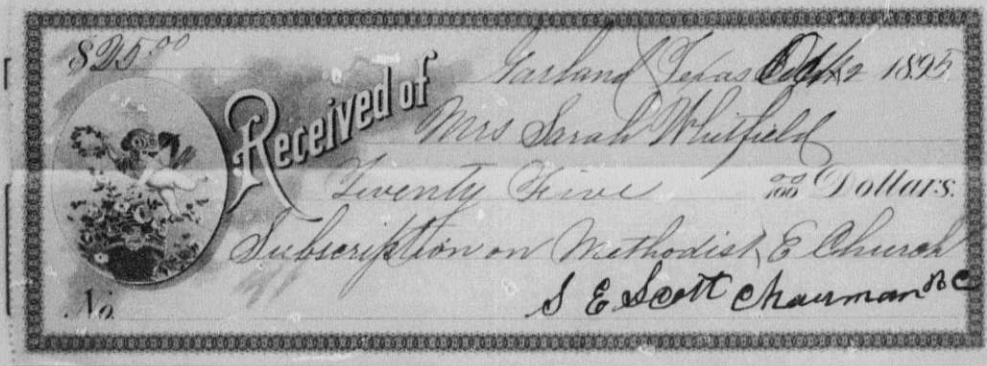 $25 00
Garland Texas Oct 2 1895
Received of Mrs Sarah Whitfield
Twenty Five 00/100 Dollars.
Subscription on Methodist E Church
No.
S E Scott Chairman BC